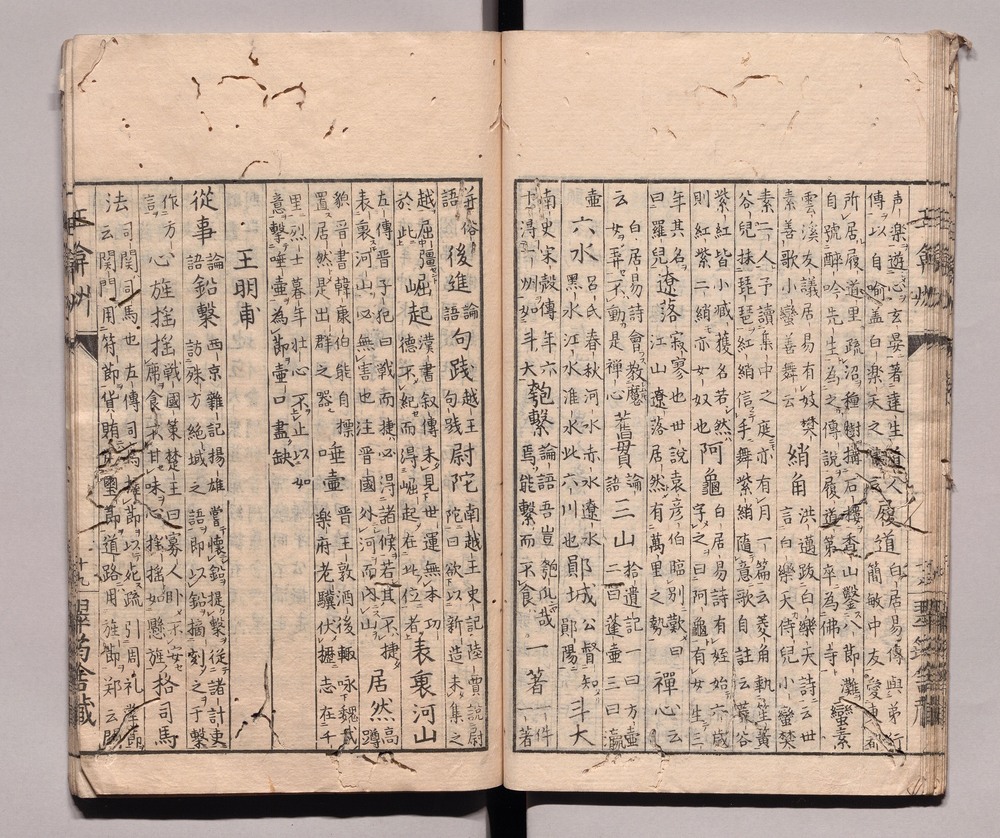 声楽遊心玄晏著達生道人
傳以自喩盖白楽天之寓言
履道
白居易傳與弟行
簡敏中友愛東都
所居履道里疏沼種樹構石樓香山鑿八節灘
自號醉吟先生為之傳説履道第卒為佛寺
蠻素
雲溪友議居易有妓樊
素善歌小蠻善舞云
綃角
洪邁跋白樂天詩云世
言白樂天侍兒小蠻樊
素二人予讀集中之庭亦有月一篇云菱角執笙簧
谷兒抹琵琶紅綃信手舞紫綃隨意歌自註云菱谷
紫紅皆小臧獲名若然
則紅紫二綃亦女奴也
阿龜
白居易詩有姪始六歲
字之曰阿龜有女生三
年其名
曰羅兒
遼落
寂寥也世説袁彦伯臨別歎曰
江山遼落居然有萬里之勢
禪心
云
白居易詩會教魔
女弄不動是禪心
舊貫
論
語
三山
拾遺記一曰方壺
二曰蓬壺三曰瀛
壺
六水
呂氏春秋河水赤水遼水
黒水江水淮水此六川也
鄖城
公督知
鄖陽
斗大
南史宋慤傳年六
十得一州如斗大
匏繫
論語吾豈匏瓜哉
焉能繫而不食
一著
一件
一著
并俗
語
後進
論
語
句踐
越王
句践
尉陀
南越王史記陸賈説尉
陀曰欲以新造未集之
越屈彊
於此
崛起
漢書叙傳未見世運無本功
德不紀而得崛起在此位者
表裏河山
左傳晋子犯曰戰而捷必得諸候若其不捷
表裏河山必無害也注晋國外河而内山
居然
高
蹲
貌晋書韓康伯能自標
置居然是出群之器
唾壺
晋王敦酒後輙咏魏武
樂府老驥伏櫪志在千
里烈士暮年壮心不止以如
意擊唾壺為節壺口盡缺
王明甫
從事
論
語
鉛槧
西京雜記揚雄嘗懐鉛提槧從諸計吏
訪殊方絶域之語即以鉛摘刻之于槧
作方
言
心旌揺揺
戰國策楚王曰寡人臥不安
席食不甘味心揺揺如懸旌
格司馬
法
司関司馬也左傳司馬握節以死疏引周礼掌節
云関門用符節貨賄用璽節道路用旌節郑云門